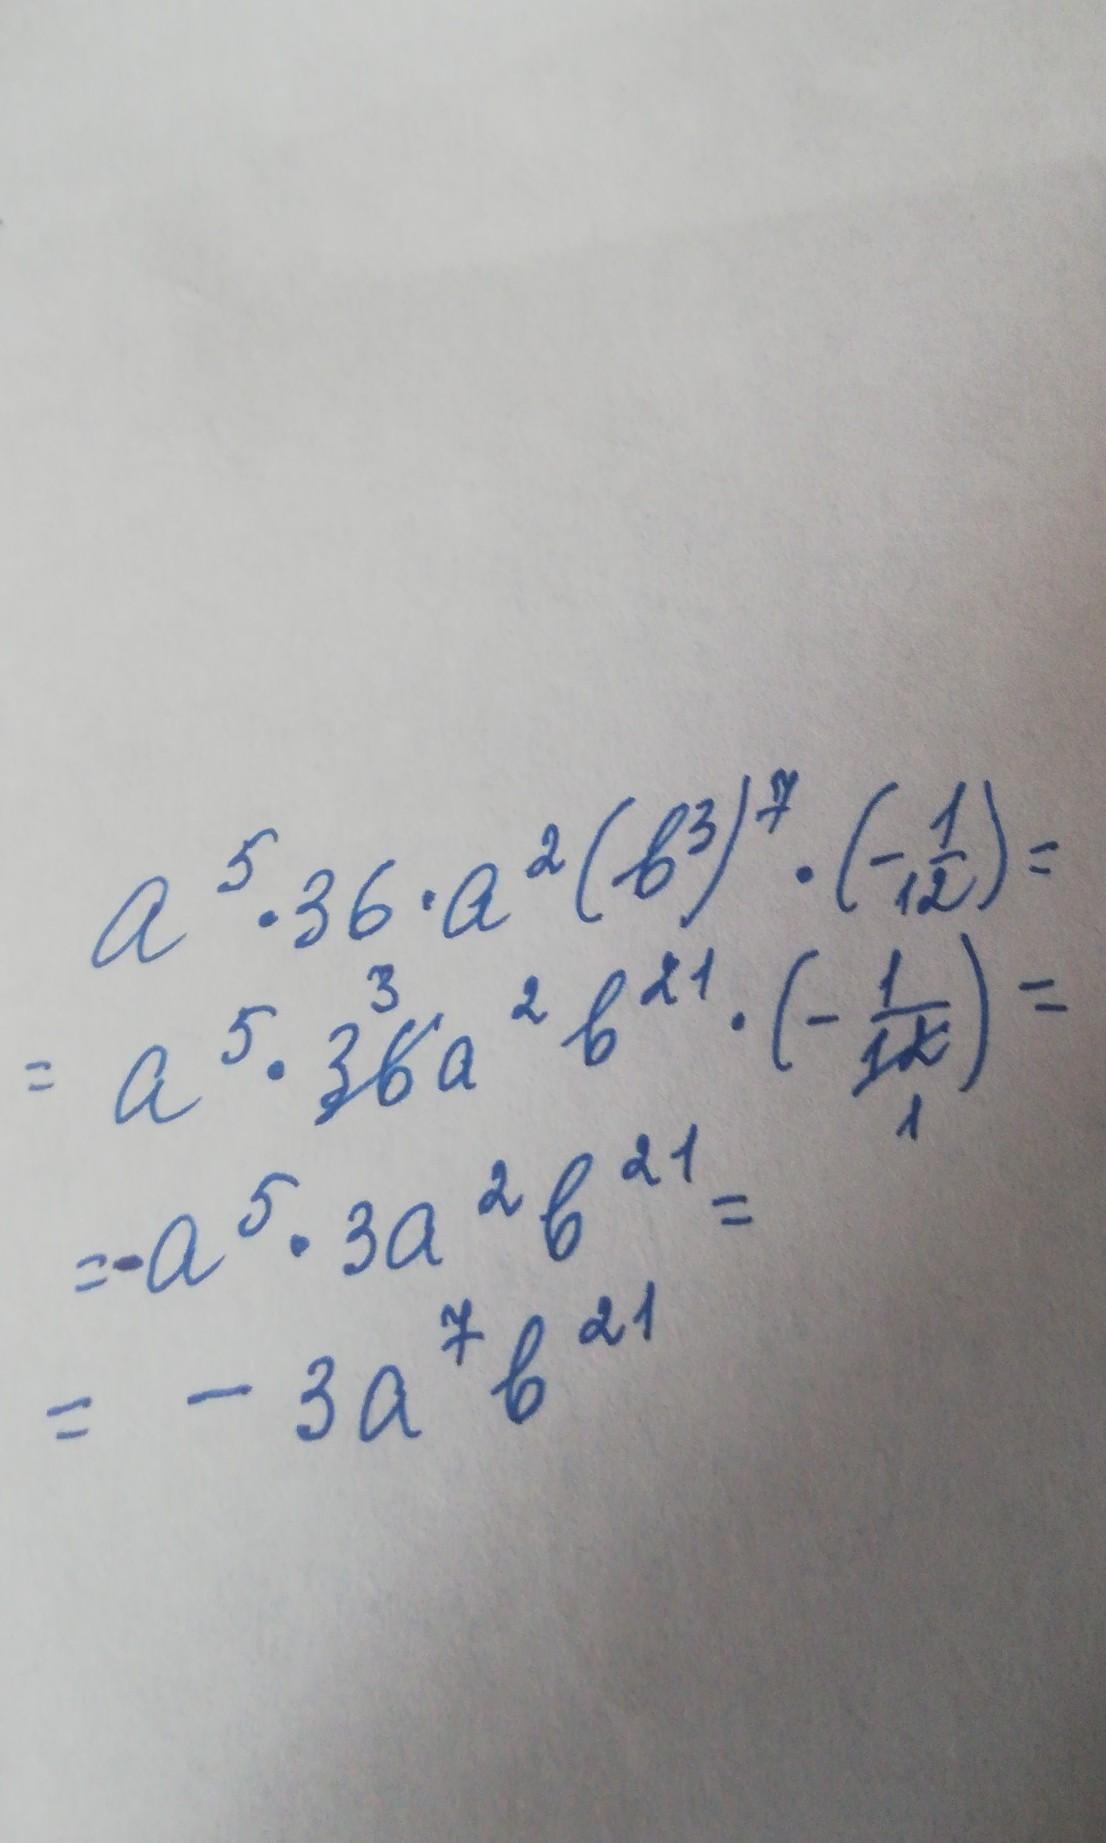 a⁵·36·a²(b³)⁷·(-1/12)=
= a⁵·36a²b²¹·(-1/12)=
3
1
=-a⁵·3a²b²¹=
= - 3a⁷b²¹